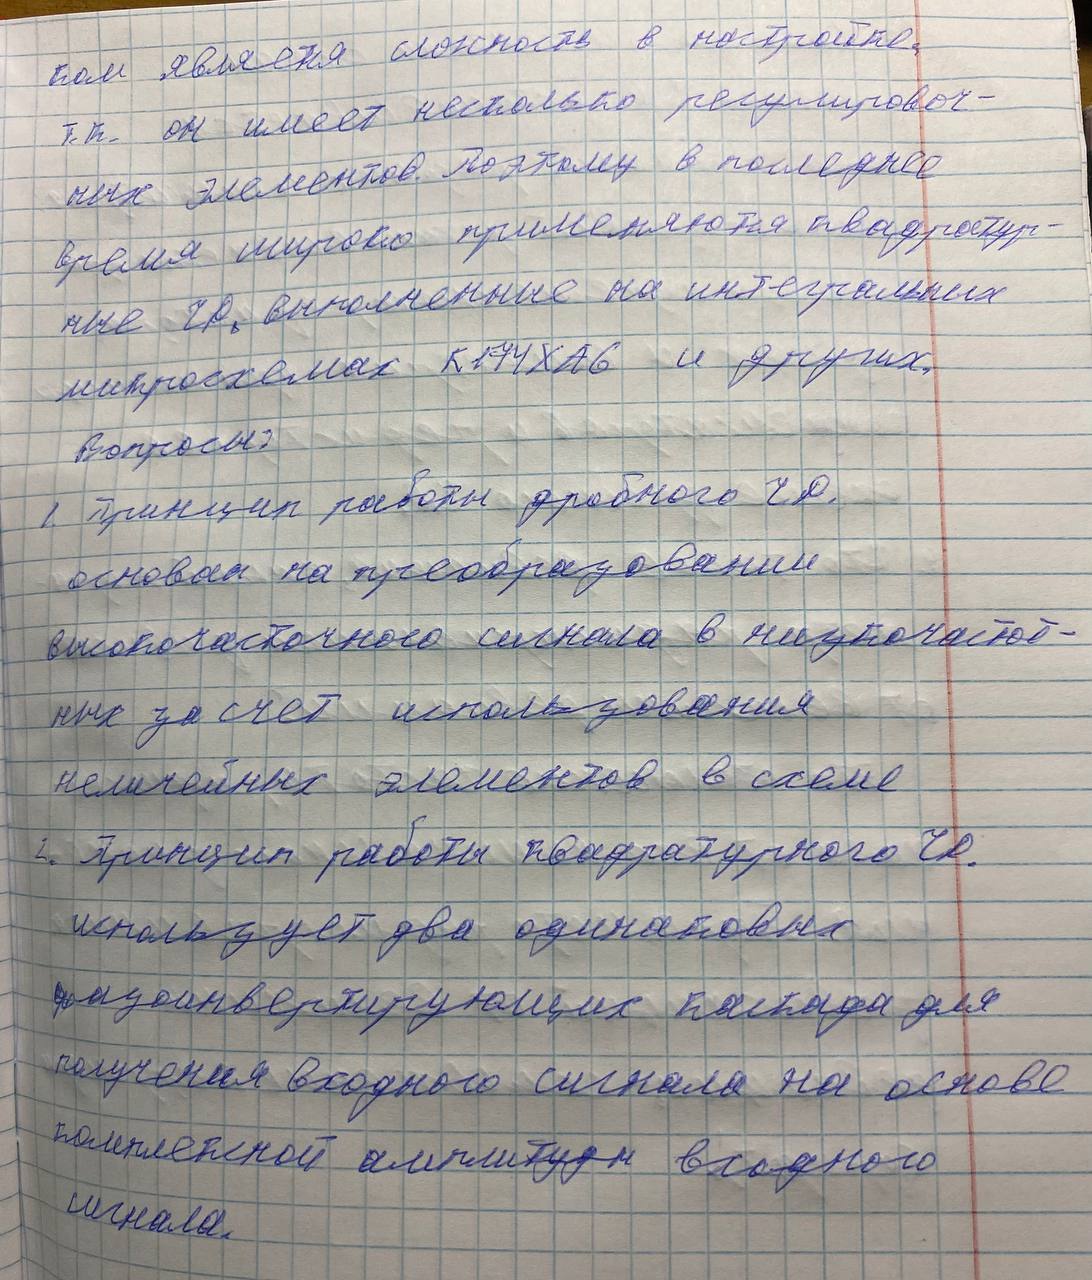 ком является сложность в настройке,
т.к. он имеет несколько регулировоч-
ных элементов. Поэтому в последнее
время широко применяются квадратур-
ные ЧД, выполненные на интегральных
микросхемах К174ХА6 и других.
Вопросы:
1. Принцип работы дробного ЧД.
основан на преобразовании
высокочасточного сигнала в низкочастот-
ных за счет использования
нелинейных элементов в схеме
2. Принцип работы квадратурного ЧД.
использует два одинаковых
фазоинвертирующих каскада для
получения входного сигнала на основе
комплексной амплитуды входного
сигнала.